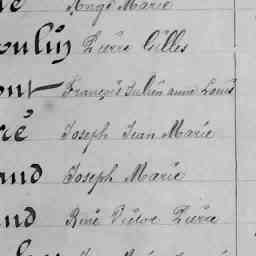 Ange Marie
oulin Pierre Gilles
ont François Julien anne Louis
ré Joseph Jean Marie
and Joseph Marie
and René Victor Pierre